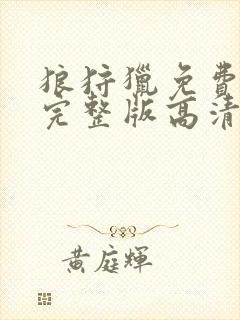 狼狩獵免費
完整版高清
黃庭輝